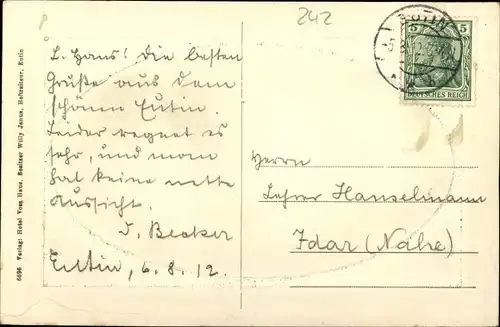 242
L. Hans! Die besten
Grüße aus dem
schönen Eutin.
Leider regnet es
sehr, und man
hat keine nette
Aussicht.
J. Becker
Eutin, 6.8.12.
6696 Verlag: Hotel Voss Haus, Besitzer Willy Janus, Hoftraiteur, Eutin
EUTIN
5 5
DEUTSCHES REICH
Herrn
Lehrer Hanselmann
Idar (Nahe)